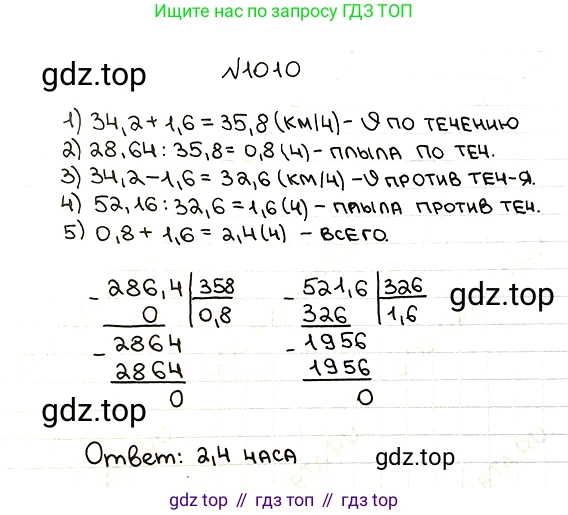 Ищите нас по запросу ГДЗ ТОП
gdz.top
№1010
1) 34,2+1,6=35,8(км/ч)-ϑ по течению
2) 28,64:35,8=0,8(ч)-плыла по теч.
3) 34,2-1,6=32,6(км/ч)-ϑ против теч-я.
4) 52,16:32,6=1,6(ч)-плыла против теч.
5) 0,8+1,6=2,4(ч) - всего.
- 286,4 358
0 0,8
- 2864
2864
0
- 521,6 326
326 1,6
- 1956
1956
0
gdz.top
gdz.top
Ответ: 2,4 часа
gdz.top
gdz top // гдз топ // gdz.top